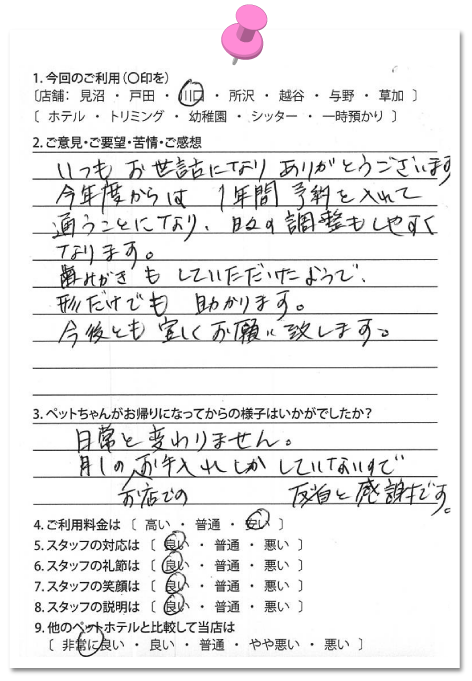 1. 今回のご利用(〇印を)
〔店舗: 見沼 ・ 戸田 ・ 川口 ・ 所沢 ・ 越谷 ・ 与野 ・ 草加 〕
〔 ホテル ・ トリミング ・ 幼稚園 ・ シッター ・ 一時預かり 〕
2.ご意見・ご要望・苦情・ご感想
いつもお世話になり ありがとうございます
今年度からは 1年間 予約を入れて
通うことになり、日々の調整もしやすく
なります。
歯みがきもしていただいたようで、
形だけでも 助かります。
今後とも宜しくお願い致します。
3. ペットちゃんがお帰りになってからの様子はいかがでしたか?
日常と変わりません。
お手入れしかしていないので
お店での
感謝です。
4. ご利用料金は 〔 高い ・ 普通 ・ 安い 〕
5. スタッフの対応は 〔 良い ・ 普通 ・ 悪い 〕
6. スタッフの礼節は 〔 良い ・ 普通 ・ 悪い 〕
7. スタッフの笑顔は 〔 良い ・ 普通 ・ 悪い 〕
8. スタッフの説明は 〔 良い ・ 普通 ・ 悪い 〕
9. 他のペットホテルと比較して当店は
〔 非常に良い ・ 良い ・ 普通 ・ やや悪い ・ 悪い 〕